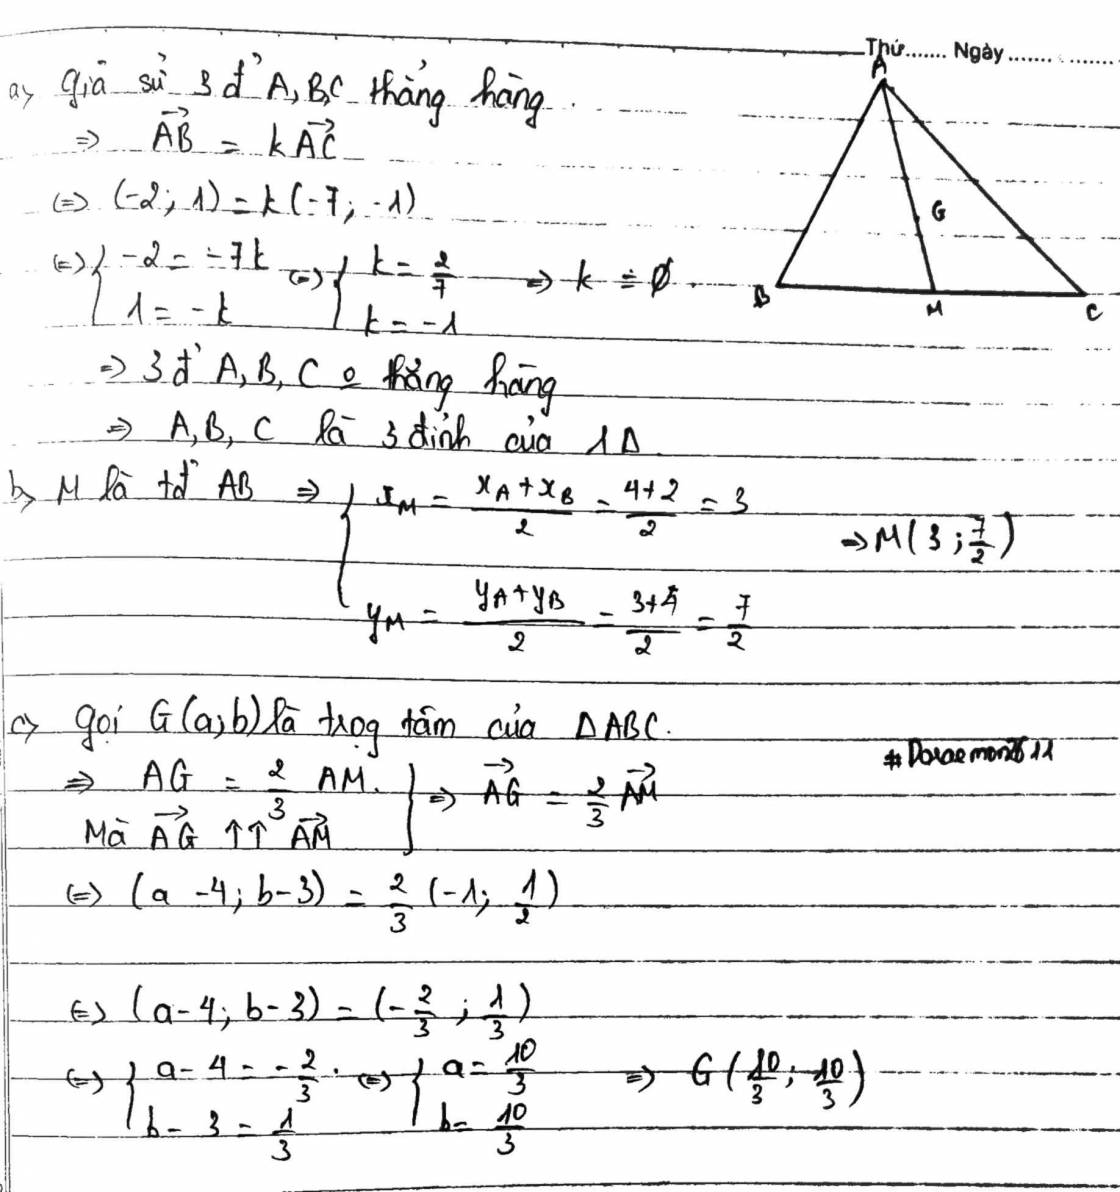 Thứ....... Ngày..............
A
B
M
C
G
a, Giả sử 3 đ' A, B, C thẳng hàng.
⇒ \overrightarrow{AB} = k\overrightarrow{AC}
⇔ (-2; 1) = k(-7; -1)
⇔ { -2 = -7k ; 1 = -k ⇔ { k = 2/7 ; k = -1 ⇒ k = ∅.
⇒ 3 đ' A, B, C o thẳng hàng
⇒ A, B, C là 3 đỉnh của 1 Δ
b, M là tđ' AB ⇒ { x_M = (x_A + x_B)/2 = (4+2)/2 = 3
⇒ M(3; 7/2)
y_M = (y_A + y_B)/2 = (3+4)/2 = 7/2
c, gọi G(a; b) là trọg tâm của ΔABC.
#Doraemon2611
⇒ AG = 2/3 AM.
Mà \overrightarrow{AG} ↑↑ \overrightarrow{AM} } ⇒ \overrightarrow{AG} = 2/3 \overrightarrow{AM}
⇔ (a - 4; b - 3) = 2/3 (-1; 1/2)
⇔ (a - 4; b - 3) = (-2/3; 1/3)
⇔ { a - 4 = -2/3 ; b - 3 = 1/3 ⇔ { a = 10/3 ; b = 10/3 ⇒ G(10/3; 10/3)